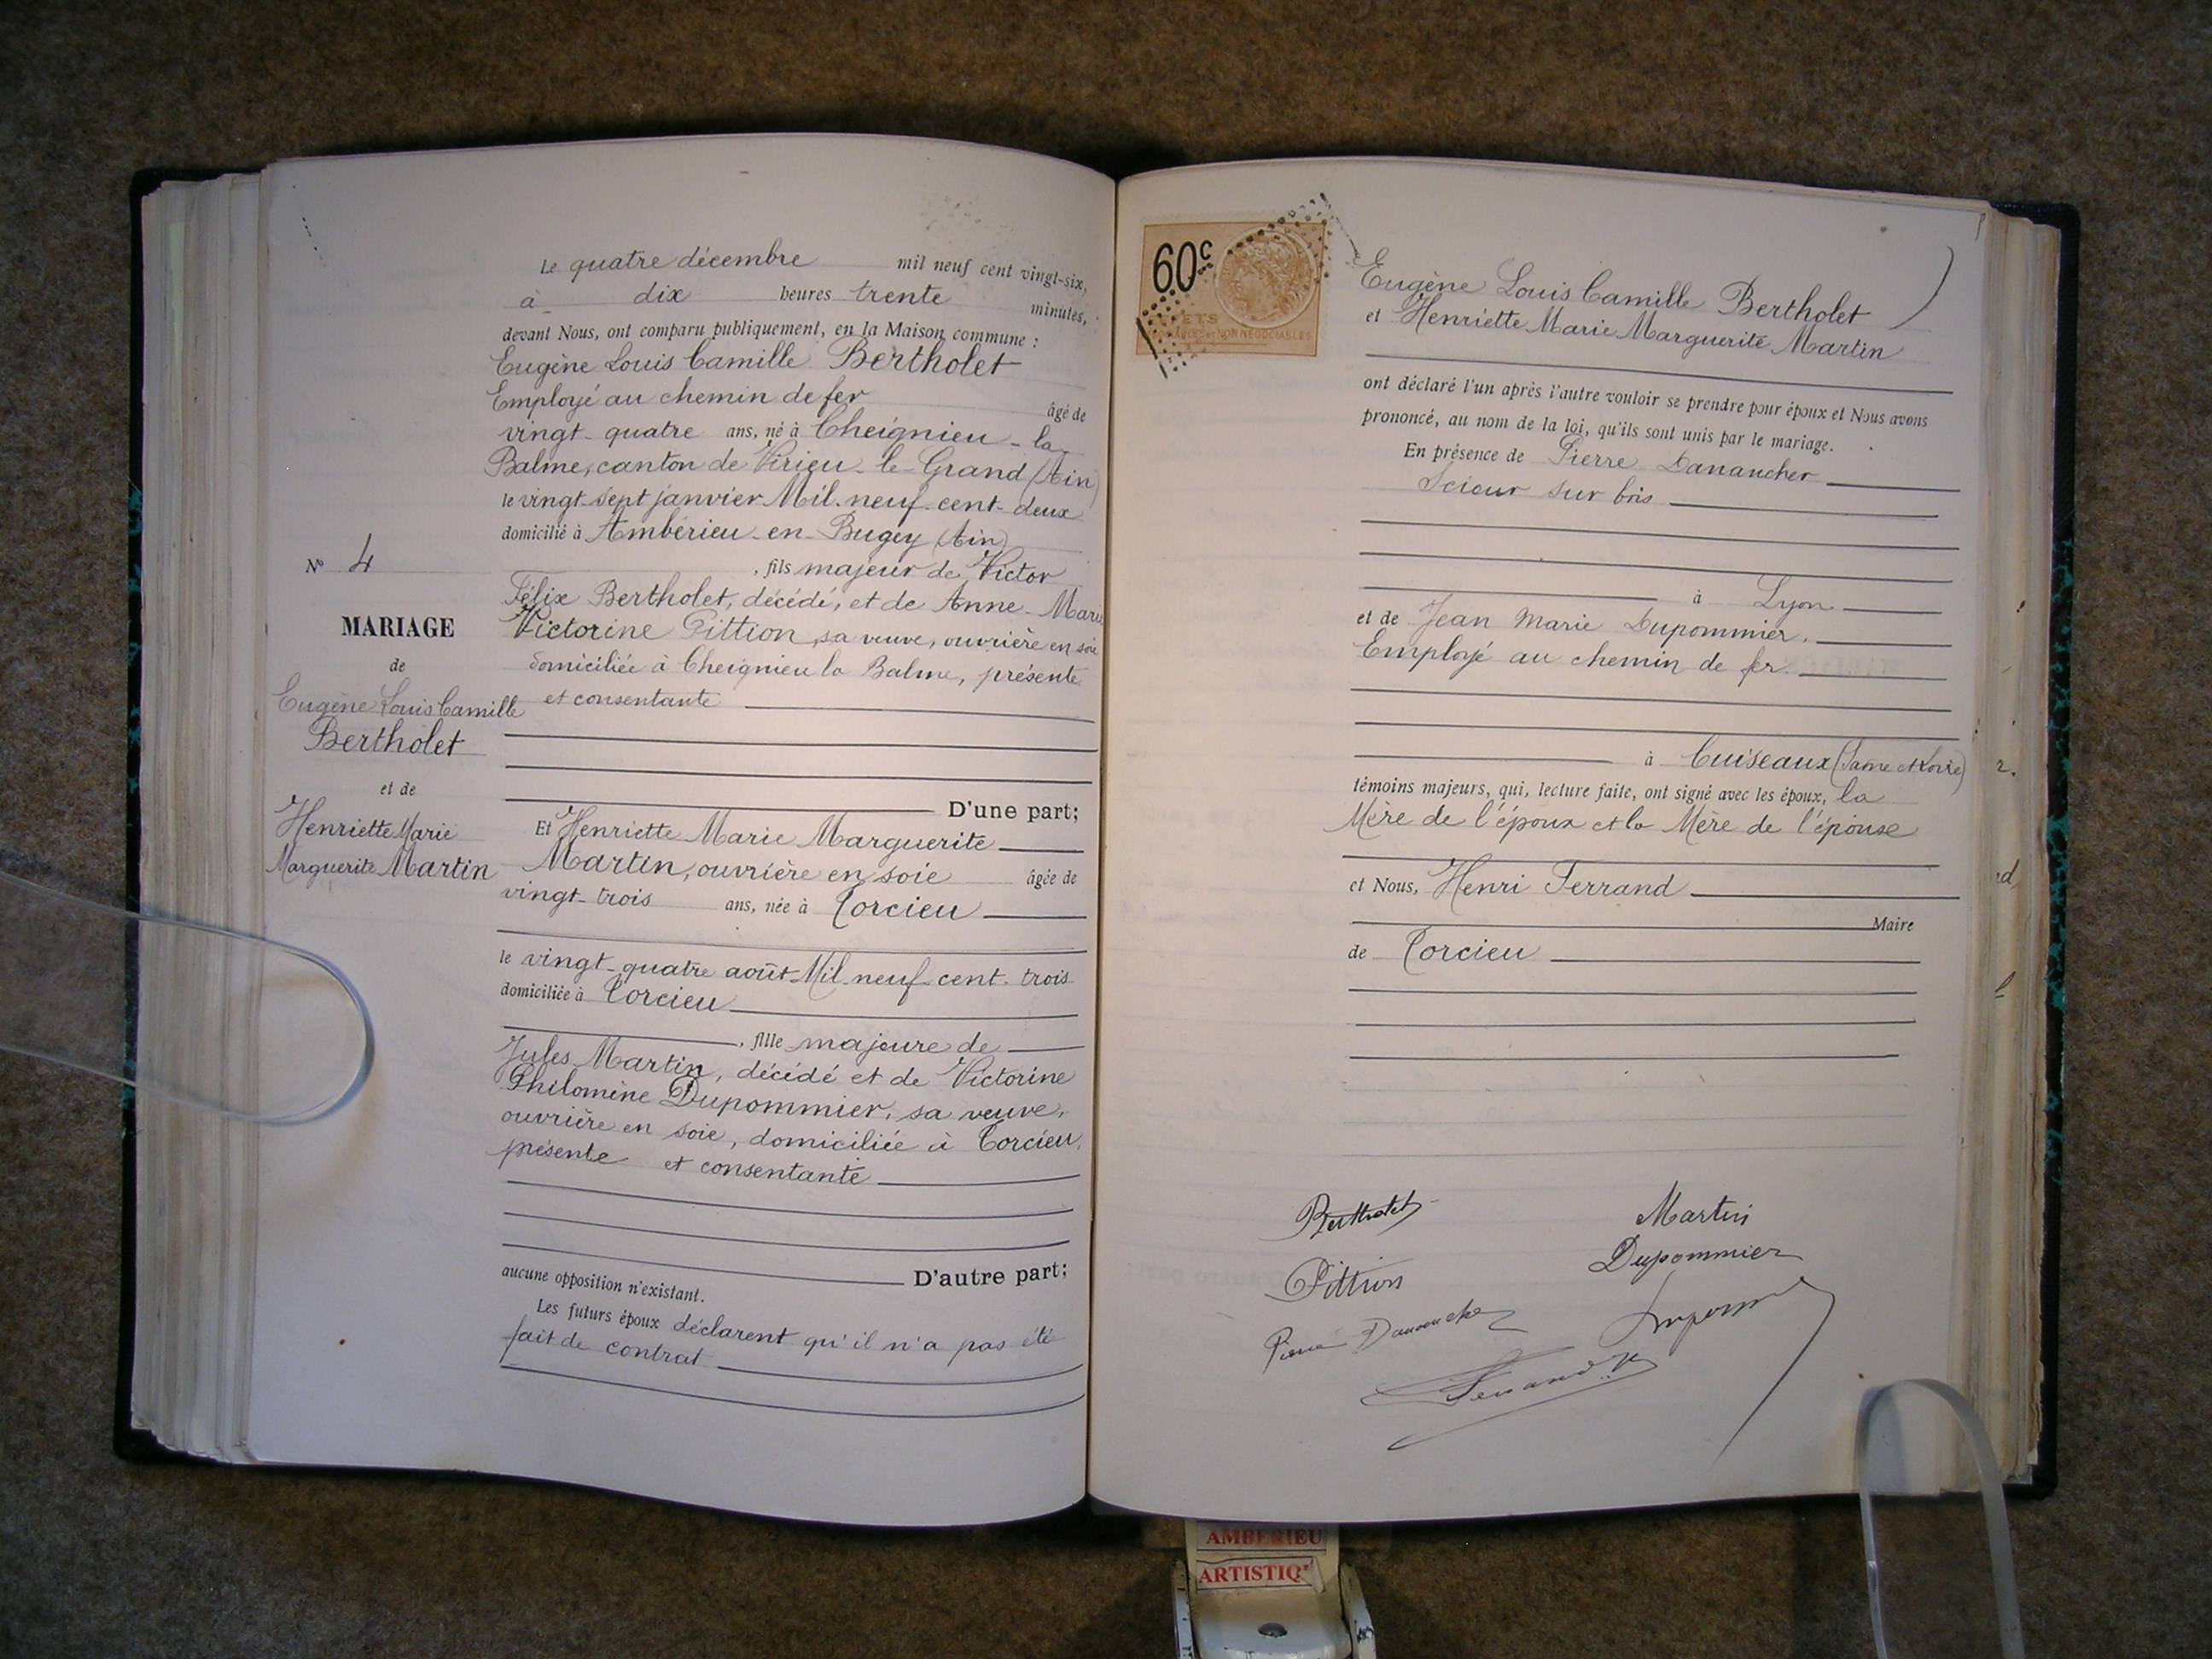 Le quatre décembre mil neuf cent vingt-six,
à dix heures trente minutes,
devant Nous, ont comparu publiquement, en la Maison commune :
Eugène Louis Camille Bertholet
Employé au chemin de fer âgé de
vingt-quatre ans, né à Cheignieu-la
Balme, canton de Virieu-le-Grand (Ain)
le vingt-sept janvier Mil-neuf-cent-deux
domicilié à Ambérieu-en-Bugey (Ain)
, fils majeur de Victor
Félix Bertholet, décédé, et de Anne-Marie
Victorine Pittion, sa veuve, ouvrière en soie
domiciliée à Cheignieu la Balme, présente
et consentante
D'une part;
Et Henriette Marie Marguerite
Martin, ouvrière en soie âgée de
vingt-trois ans, née à Torcieu
le vingt-quatre août Mil-neuf-cent-trois
domiciliée à Torcieu
, fille majeure de
Jules Martin, décédé et de Victorine
Philomène Dupommier, sa veuve,
ouvrière en soie, domiciliée à Torcieu,
présente et consentante
D'autre part;
aucune opposition n'existant.
Les futurs époux déclarent qu'il n'a pas été
fait de contrat
N° 4
MARIAGE
de
Eugène Louis Camille
Bertholet
et de
Henriette Marie
Marguerite Martin
60c
Eugène Louis Camille Bertholet
et Henriette Marie Marguerite Martin
ont déclaré l'un après l'autre vouloir se prendre pour époux et Nous avons
prononcé, au nom de la loi, qu'ils sont unis par le mariage.
En présence de Pierre Danancher
Scieur sur bois
à Lyon
et de Jean Marie Dupommier,
Employé au chemin de fer
à Cuiseaux (Saône et Loire)
témoins majeurs, qui, lecture faite, ont signé avec les époux, la
Mère de l'époux et la Mère de l'épouse
et Nous, Henri Ferrand
Maire
de Torcieu
Bertholet
Martin
Pittion
Dupommier
Pierre Danancher
Ferrand H
AMBERIEU
ARTISTIQ